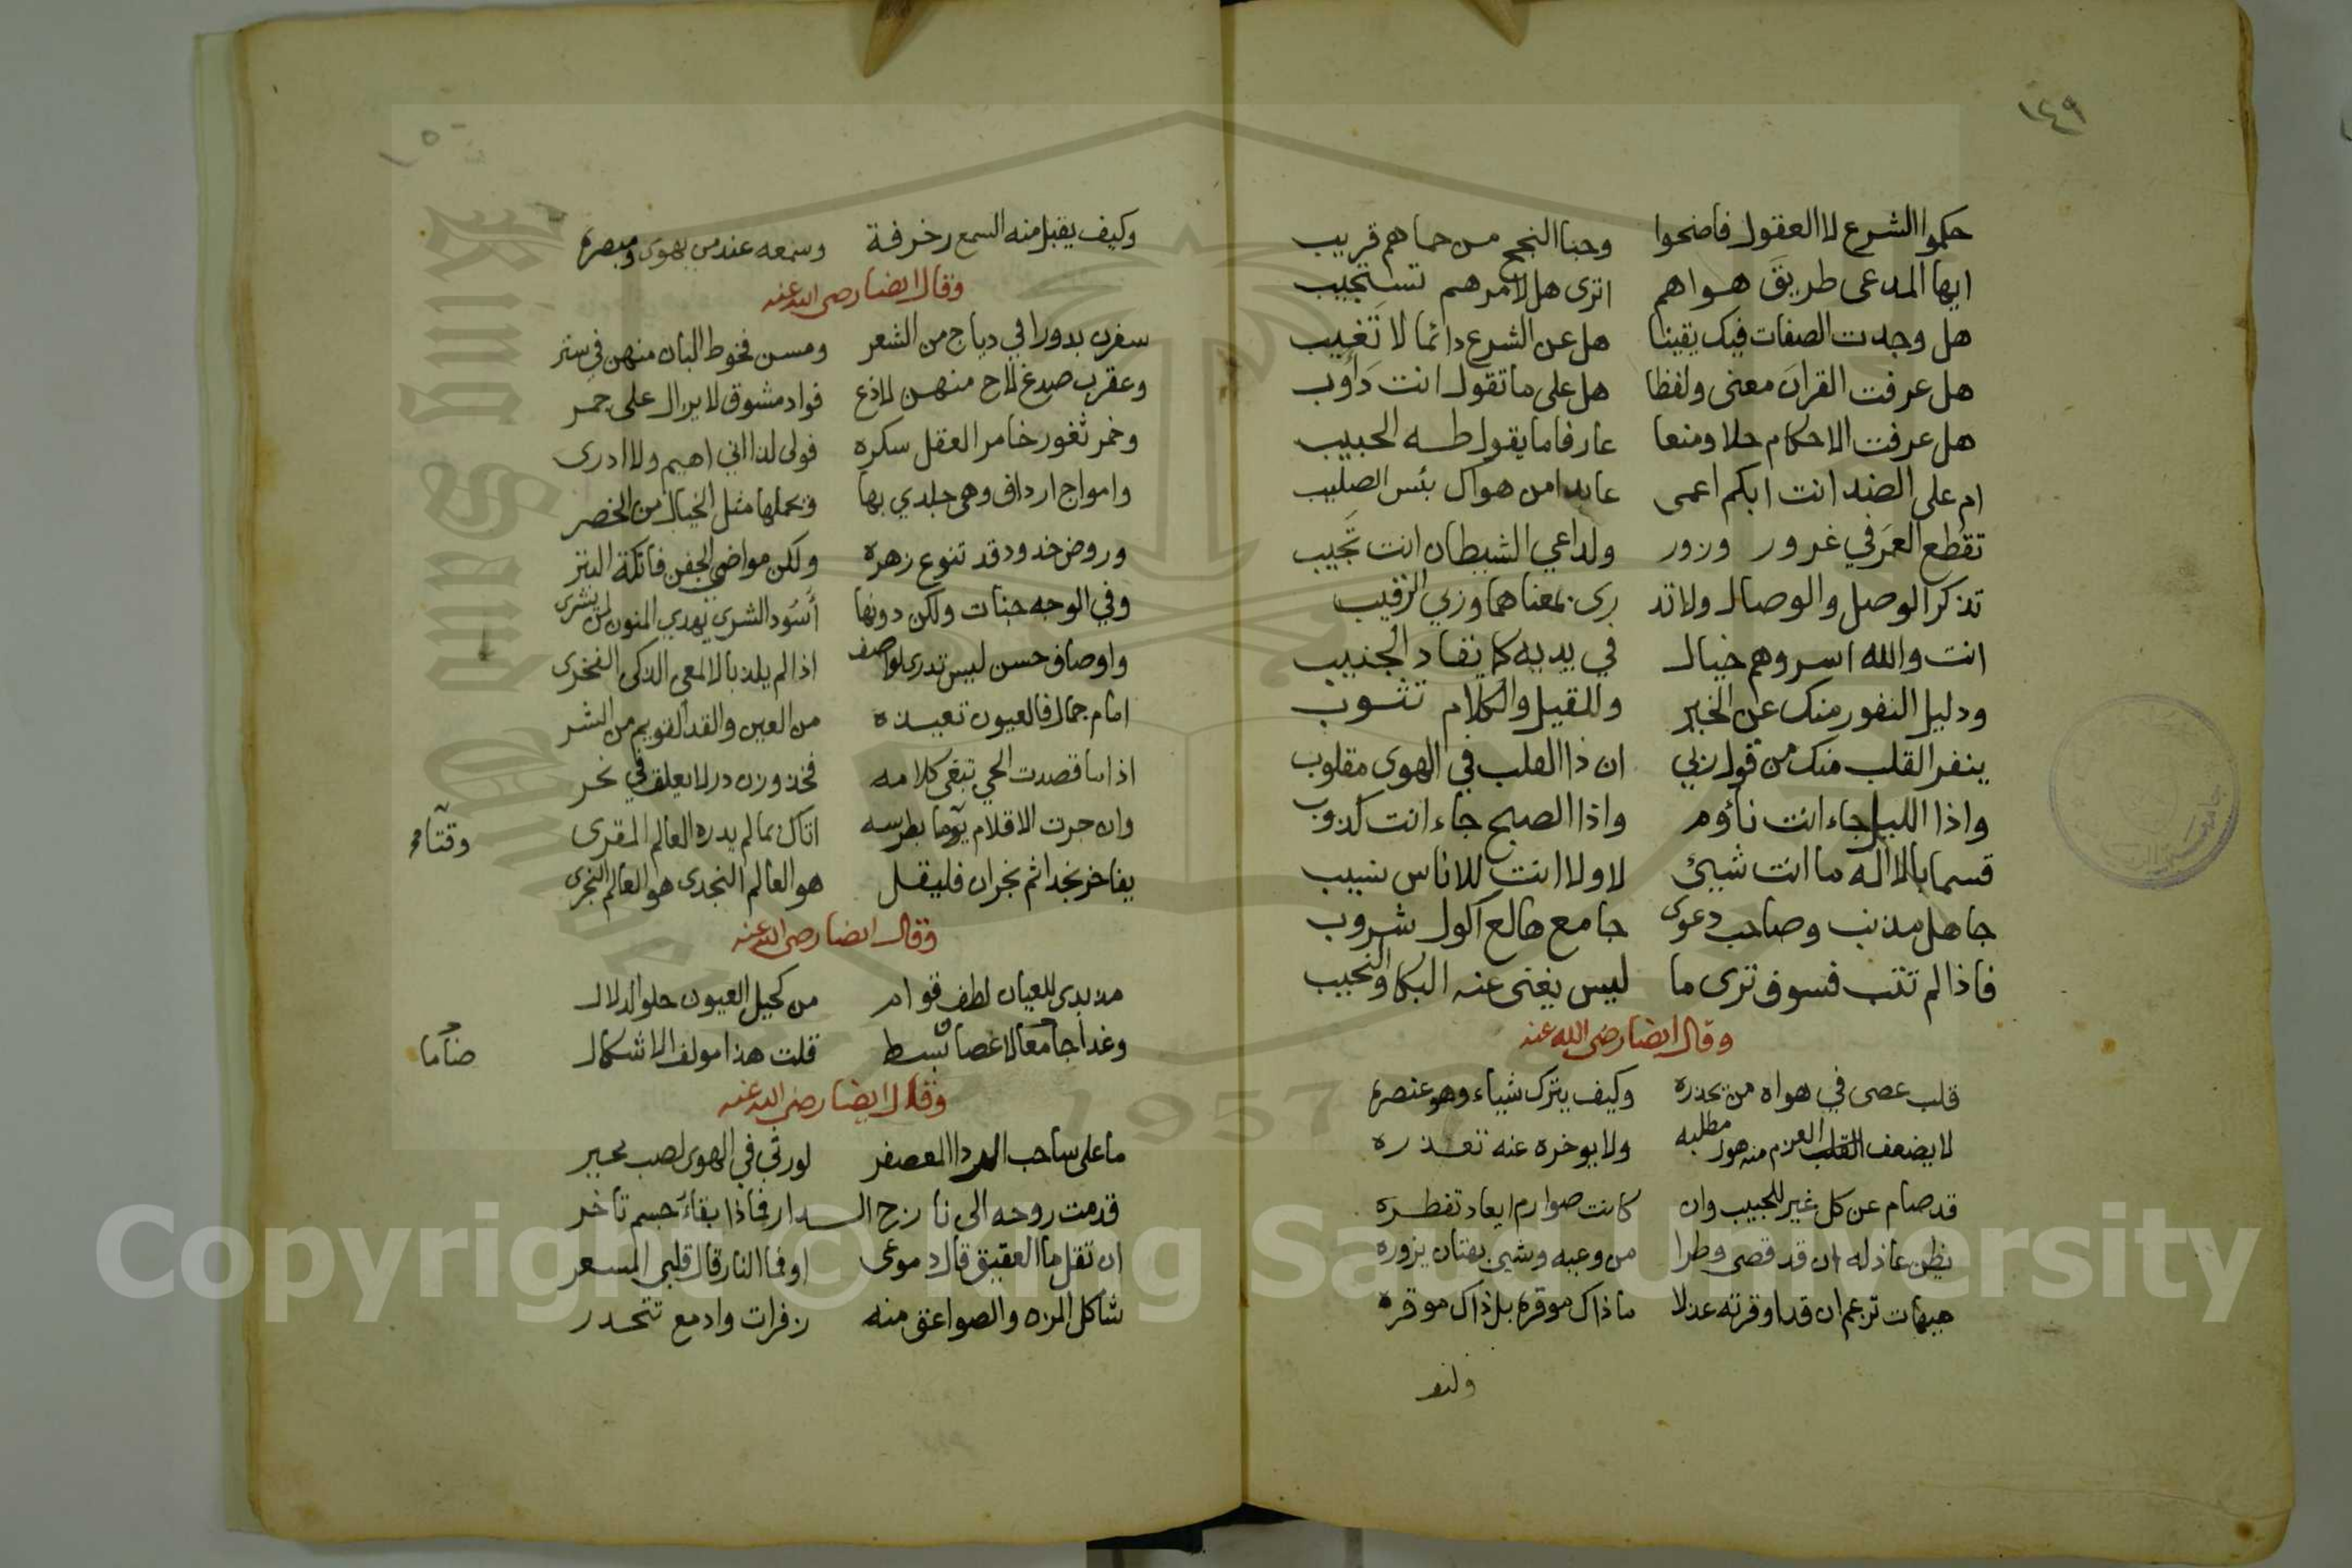 ١٤٩
حكموا الشرع لا العقول فاضحوا وجنا النجح من حماهم قريب
ايها المدعى طريق هواهم اترى هل لامرهم تستجيب
هل وجدت الصفات فيك يقينا هل عن الشرع دائما لا تغيب
هل عرفت القران معنى ولفظا هل على ما تقول انت دأوب
هل عرفت الاحكام حلا ومنعا عارفا ما يقول طه الحبيب
ام على الضد انت ابكم اعمى عابدا من هواك بئس الصليب
تقطع العمر في غرور وزور ولداعي الشيطان انت تجيب
تذكر الوصل والوصال ولا تد رى بمعناهما وزي الرقيب
انت والله اسر وهم خيال في يديه كما يقاد الجنيب
ودليل النفور منك عن الخير وللقيل والكلام تثوب
ينفر القلب منك من قول ربي ان ذا القلب في الهوى مقلوب
واذا الليل جاء انت نأوم واذا الصبح جاء انت كذوب
قسما بالاله ما انت شيئ لا ولا انت للاناس نسيب
جاهل مذنب وصاحب دعوى جامع هالع اكول شروب
فاذا لم تتب فسوف ترى ما ليس يغنى عنه البكا والنحيب
وقال ايضا رضى الله عنه
قلب عصى في هواه من يحذره وكيف يترك شياء وهو عنصره
لا يضعف القلب العزم منه هول مطلبه ولا يوخره عنه تعذره
قد صام عن كل غير للحبيب وان كانت صوارم ابعاد تفطره
يظن عاذله ان قد قضى وطرا من وعيه وشي بهتان يزوره
هيهات تزعم ان قد اوقرته عذلا ما ذاك موقره بل ذاك موقره
١٥٠
وكيف يقبل منه السمع زخرفة وسمعه عند من يهوى ومبصره
وقال ايضا رضى الله عنه
سفرن بدورا في دياج من الشعر ومسن فخوط البان منهن في ستر
وعقرب صدغ لاح منهن لاذع فواد مشوق لا يزال على جمر
وخمر ثغور خامر العقل سكره فولى لذا اني اهيم ولا ادرى
وامواج ارداف وهى جلدي بها وحملها مثل الخيال من الخصر
وروض خدود قد تنوع زهره ولكن مواضي الجفن فاتكة البتر
وفي الوجه جنات ولكن دونها أسود الشرى يهدي المنون لمن يشرى
واوصاف حسن ليس تدرى لواصف اذا لم يلذ بالالمعي الذكى الفخرى
امام جمال فالعيون تعيذه من العين والقد القويم من الشر
اذا ما قصدت الحي تبغى كلامه فخذ وزن در لا يعلق في نحر
وان جرت الاقلام يوما بطرسه اتاك بما لم يدره العالم المقرى
يفاخر نجدا ثم نجران فليقل هو العالم النجدى هو العالم النجرى
وقال ايضا رضى الله عنه
مذ بدى للعيان لطف قوام من كحيل العيون حلو الدلال
وغدا جامعا لاغصان بسط قلت هذا مولف الاشكال
ضاما
وقال ايضا رضى الله عنه
ما على ساحب الردا المعصفر لو رثى في الهوى لصب محير
قدمت روحه الى نازح الدار فماذا بقاء جسم تأخر
ان تقل ما العقيق قال دموعى او فما النار قال قلبي المسعر
شاكل المزن والصواعق منه زفرات وادمع تتحدر
Copyright © King Saud University
1957